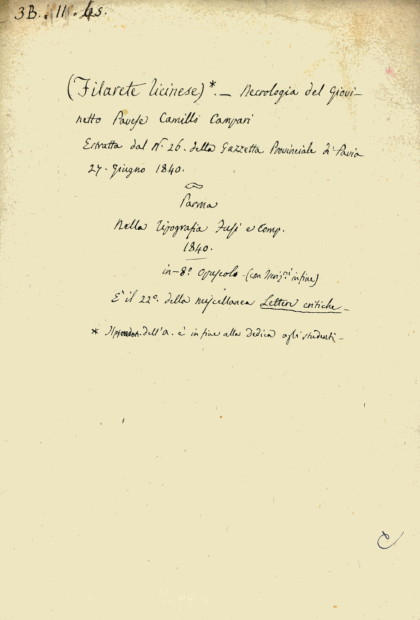 3B. 11. 45.
(Filarete Ticinese)*. — Necrologia del Giovi-
netto Pavese Camillo Campari
Estratta dal N.° 26. della Gazzetta Provinciale di Pavia
27. giugno 1840.
Parma
Nella Tipografia Fusi e Comp.
1840.
in-8.° opuscolo (con in fine)
E' il 22.° della miscellanea Lettere critiche —
* Il dell'a. è in fine alla dedica agli studenti —